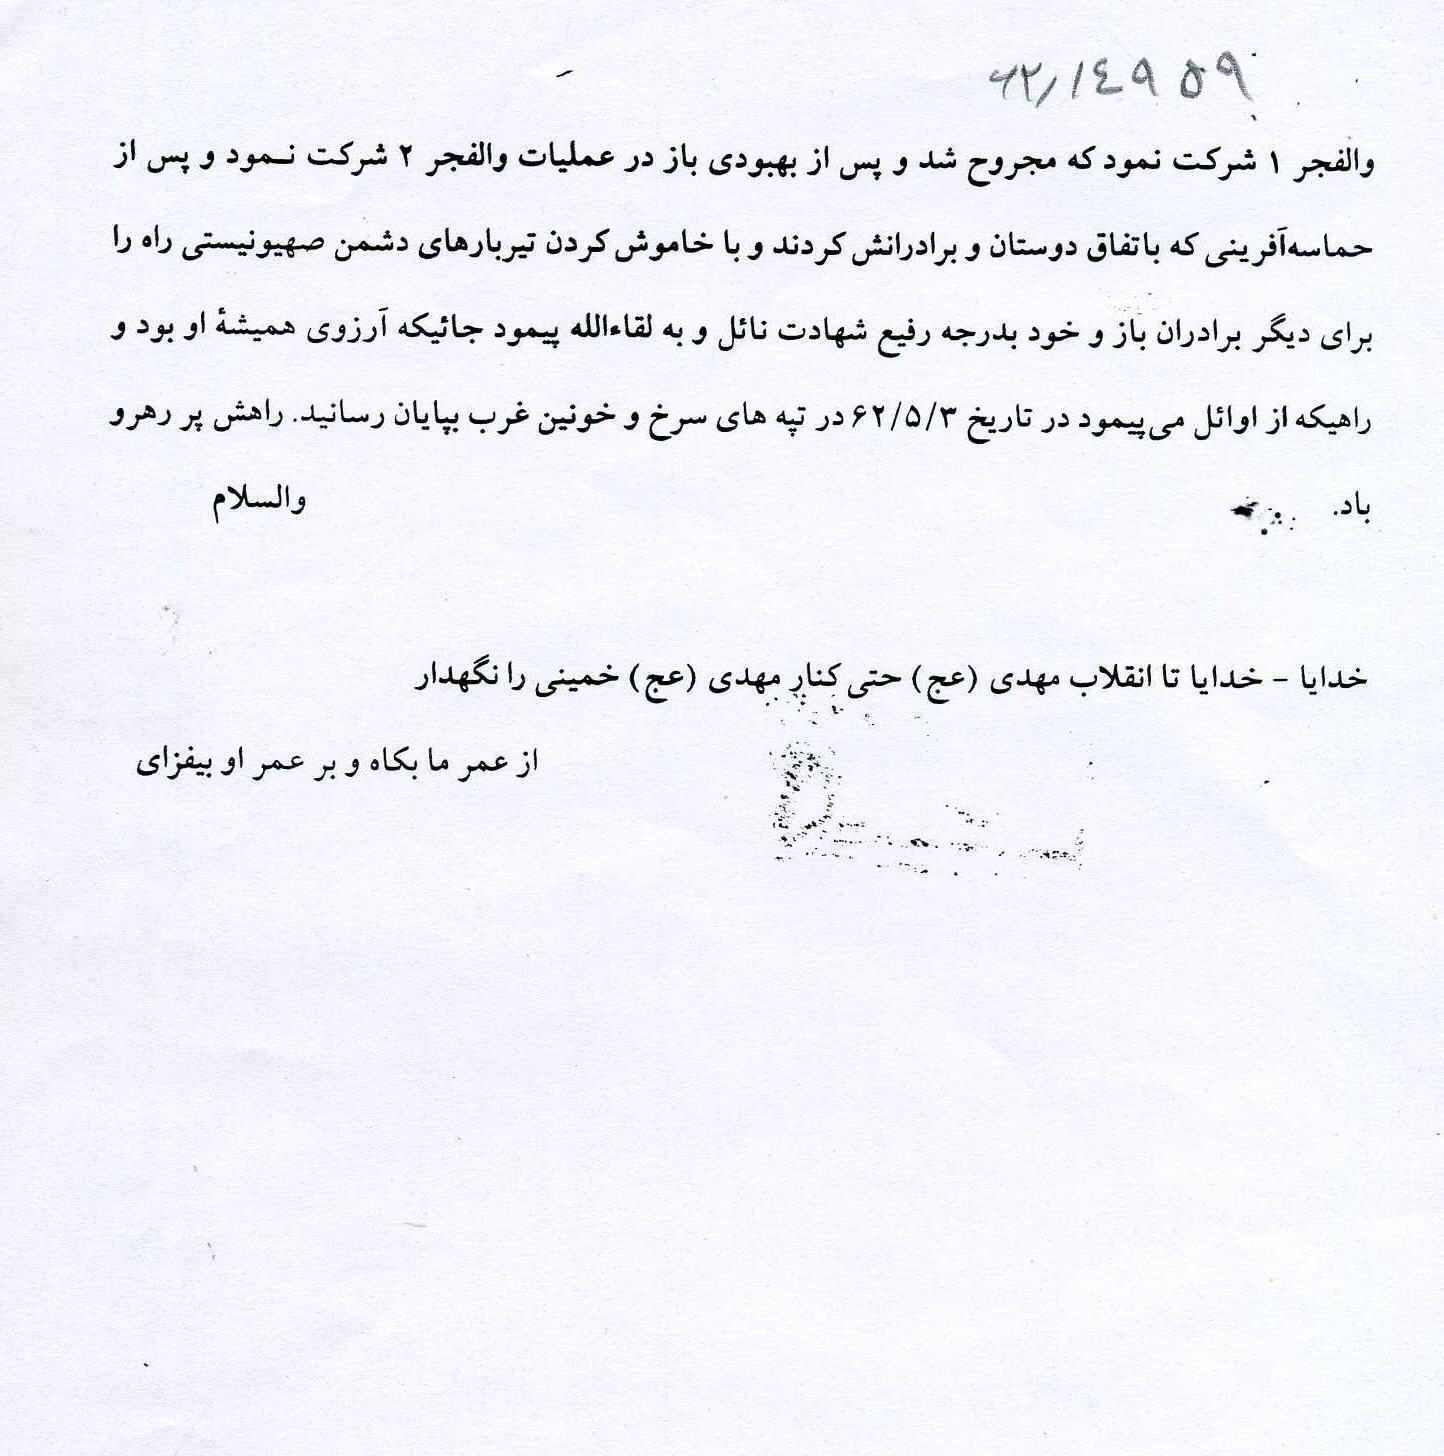 ۶۲/۱٤۹۵۹
والفجر ۱ شرکت نمود که مجروح شد و پس از بهبودی باز در عملیات والفجر ۲ شرکت نـمود و پس از
حماسه‌آفرینی که باتفاق دوستان و برادرانش کردند و با خاموش کردن تیربارهای دشمن صهیونیستی راه را
برای دیگر برادران باز و خود بدرجه رفیع شهادت نائل و به لقاءالله پیمود جائیکه آرزوی همیشهٔ او بود و
راهیکه از اوائل می‌پیمود در تاریخ ۶۲/۵/۳ در تپه های سرخ و خونین غرب بپایان رسانید. راهش پر رهرو
باد. والسلام
خدایا - خدایا تا انقلاب مهدی (عج) حتی کنار مهدی (عج) خمینی را نگهدار
از عمر ما بکاه و بر عمر او بیفزای